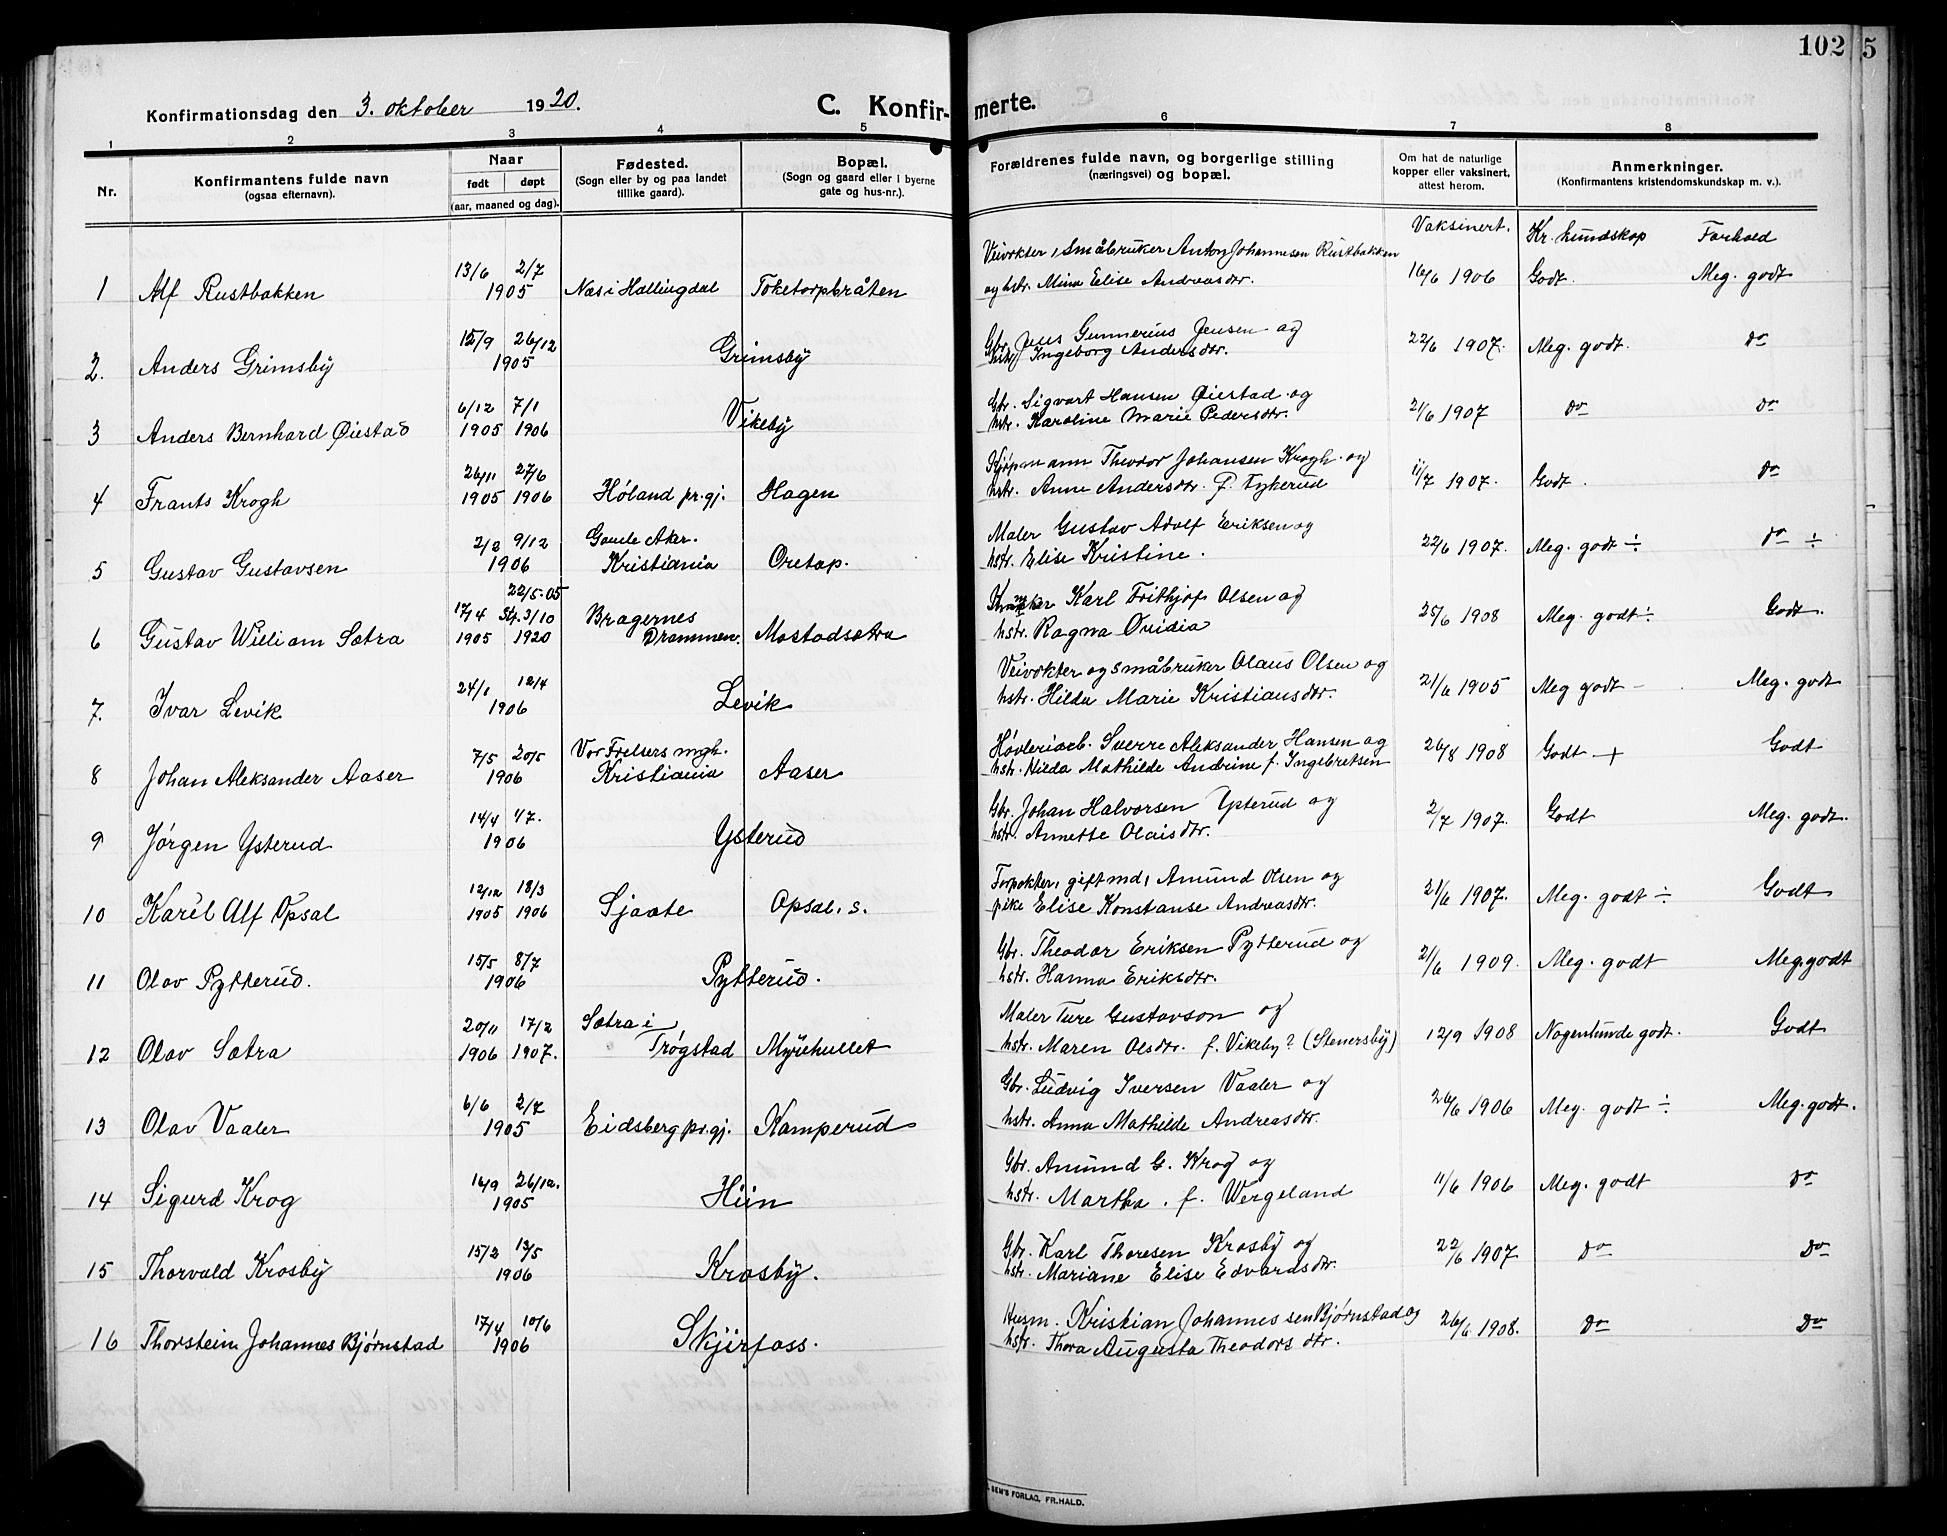 102 5
Konfirmationsdag den 3. oktober 1920.
C. Konfirmerte.
1 2 3 4 5 6 7 8
Nr.
Konfirmantens fulde navn
(ogsaa efternavn).
Naar
født døpt
(aar, maaned og dag).
Fødested.
(Sogn eller by og paa landet
tillike gaard).
Bopæl.
(Sogn og gaard eller i byerne
gate og hus-nr.).
Forældrenes fulde navn, og borgerlige stilling
(næringsvei) og bopæl.
Om hat de naturlige
kopper eller vaksinert,
attest herom.
Anmerkninger.
(Konfirmantens kristendomskundskap m. v.).
Vaksinert. Kr. kundskap Forhold
Veivokter, småbruker Anton Johannesen Rustbakken
1 Alf Rustbakken 13/6 2/7 1905 Næs i Hallingdal Toketorpbråten og hstr. Mina Elise Andreasdtr. 16/6 1906 Godt. Meg. godt
Gbr. Jens Gunnerius Jensen og
2. Anders Grimsby 15/9 26/12 1905 Grimsby hstr. Ingeborg Andersdtr. 22/6 1907. Meg. godt. do
Gbr. Sigvart Hansen Øiestad og
3 Anders Bernhard Øiestad 6/12 1905 7/1 1906 Vikeby hstr. Karoline Marie Pedersdtr. 21/6 1907 do do
Kjøpmann Theodor Johansen Krogh og
4 Frants Krogh 26/11 1905 27/6 1906 Høland pr.gj. Hagen hstr. Anne Andersdtr. f. Tykerud 11/7 1907. Godt. do
Maler Gustav Adolf Eriksen og
5 Gustav Gustavsen 2/2 9/12 1906 Gamle Aker. Kristiania Oretop. hstr. Elise Kristine. 22/6 1907. Meg. godt ÷ do ÷
Karl Frithjof Olsen og
6 Gustav William Sætra 17/4 1905 22/5-05 Stf. 3/10 1920 Bragernes Drammen. Mostadsætra hstr. Ragna Ovidia 25/6 1908 Meg. godt ÷ Godt.
Veivokter og småbruker Olaus Olsen og
7. Ivar Levik 24/1 12/4 1906 Levik hstr. Hilda Marie Kristiansdtr. 21/6 1905 Meg godt - Meg. godt
Høvleriarb. Sverre Aleksander Hansen og
8 Johan Aleksander Aaser 7/5 20/5 1906 Vor Frelsers mgh. Kristiania Aaser hstr. Hilda Mathilde Andrine f. Ingebretsen 26/8 1908 Godt + Godt
Gbr. Johan Halvorsen Ysterud og
9 Jørgen Ysterud 14/4 1/7. 1906 Ysterud hstr. Annette Olaisdtr. 2/7 1907. Godt Meg. godt.
Forpakter, gift md, Amund Olsen og
10 Karel Alf Opsal 12/12 1905 18/3 1906 Sjaate Opsal. s. pike Elise Konstanse Andreasdtr. 21/6 1907. Meg. godt ÷ Godt
Gbr. Theodor Eriksen Pytterud og
11 Olav Pytterud. 15/5 8/7 1906 Pytterud. hstr. Hanna Eriksdtr. 21/6 1909. Meg. godt Meg. godt
Maler Ture Gustavson og
12 Olav Sætra 20/11 1906 17/2 1907. Sætra i Trøgstad Myrehullet hstr. Maren Olsdtr. f. Vikeby? (Stenersby) 12/9 1908 Nogenlunde godt. Godt
Gbr. Ludvig Iversen Vaaler og
13 Olav Vaaler 6/6 2/7 1905 Eidsberg pr.gj. Kamperud hstr. Anna Mathilde Andreasdtr. 26/6 1906 Meg. godt ÷ Meg. godt.
Gbr. Amund G. Krog og
14 Sigurd Krog 16/9 26/12. 1905 Hiin hstr. Martha. f. Wergeland 11/6 1906 Meg. godt do
Gbr. Karl Thoresen Krosby og
15 Thorvald Krosby 15/2 13/5 1906 Krosby. hstr. Mariane Elise Edvardsdtr. 22/6 1907 do do
Husm. Kristian Johannessen Bjørnstad og
16 Thorstein Johannes Bjørnstad 17/4 10/6 1906 Skjirfoss. hstr. Thora Augusta Theodors dtr. 26/6. 1908. do do
SEM'S FORLAG, FR.HALD.